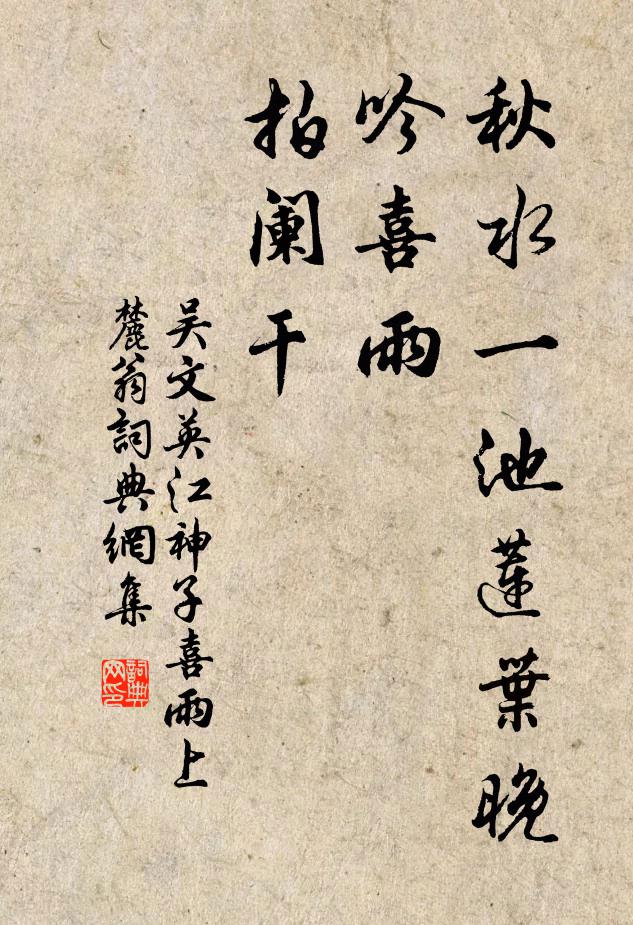 秋水一池蓮葉晚
吟喜雨
拍闌干
吴文英江神子喜雨上
麓翁詞典網集
詞典网印